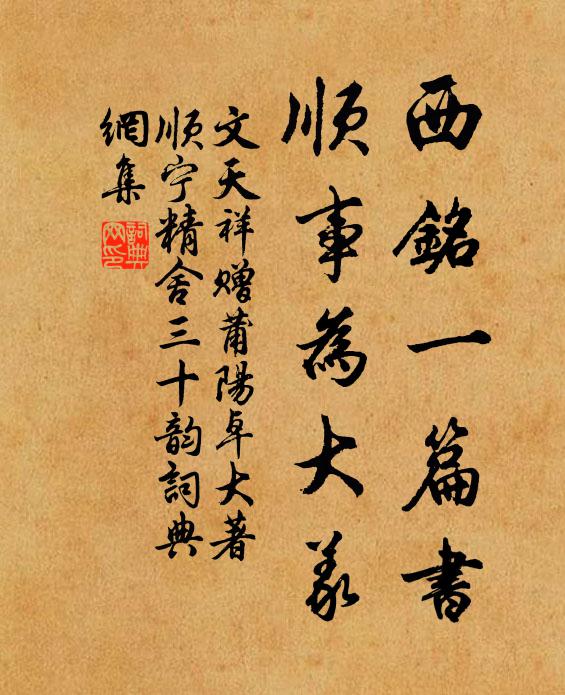 西銘一篇書
順事為大義
文天祥贈莆陽卓大著
順宁精舍三十韵詞典
網集
詞典网印